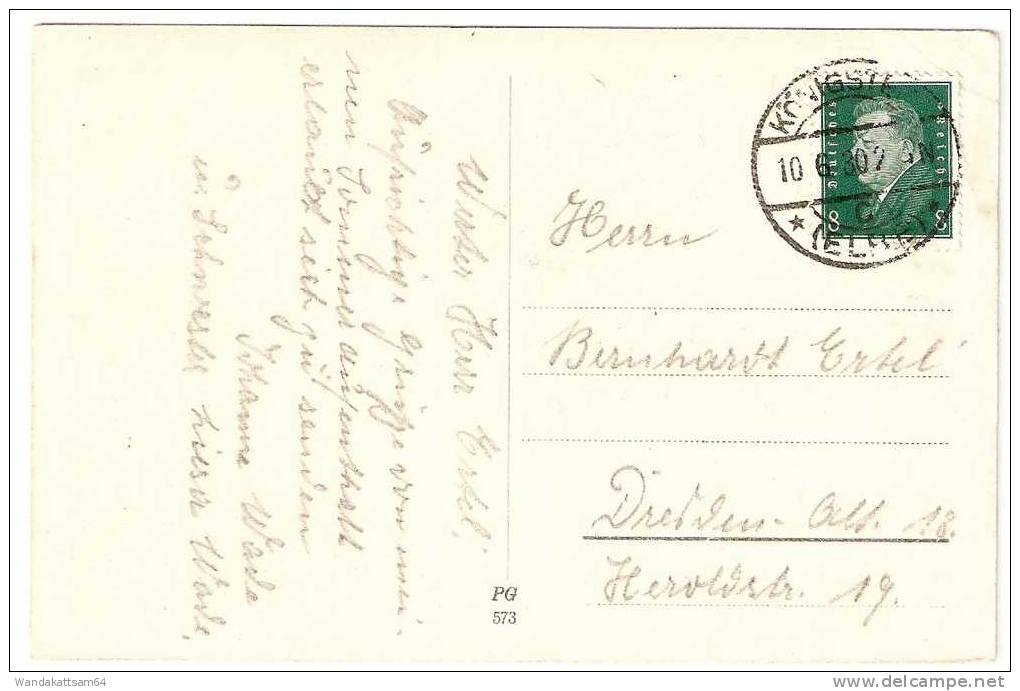 Werter Herr Ertel!
Aufrichtige Grüße von mei-
nem Sommeraufenthalt
erlaubt sich zu senden
Johanne Wade
u. Schwester Liesa Wade.
KÖNIGSTE
10 6 30 7 8 N
(ELBE)
Deutsches Reich
8 8
Herrn
Bernhardt Ertel
Dresden-Alt. 18.
Heroldstr. 19.
PG
573
Wandakattsam64
delcampe.net